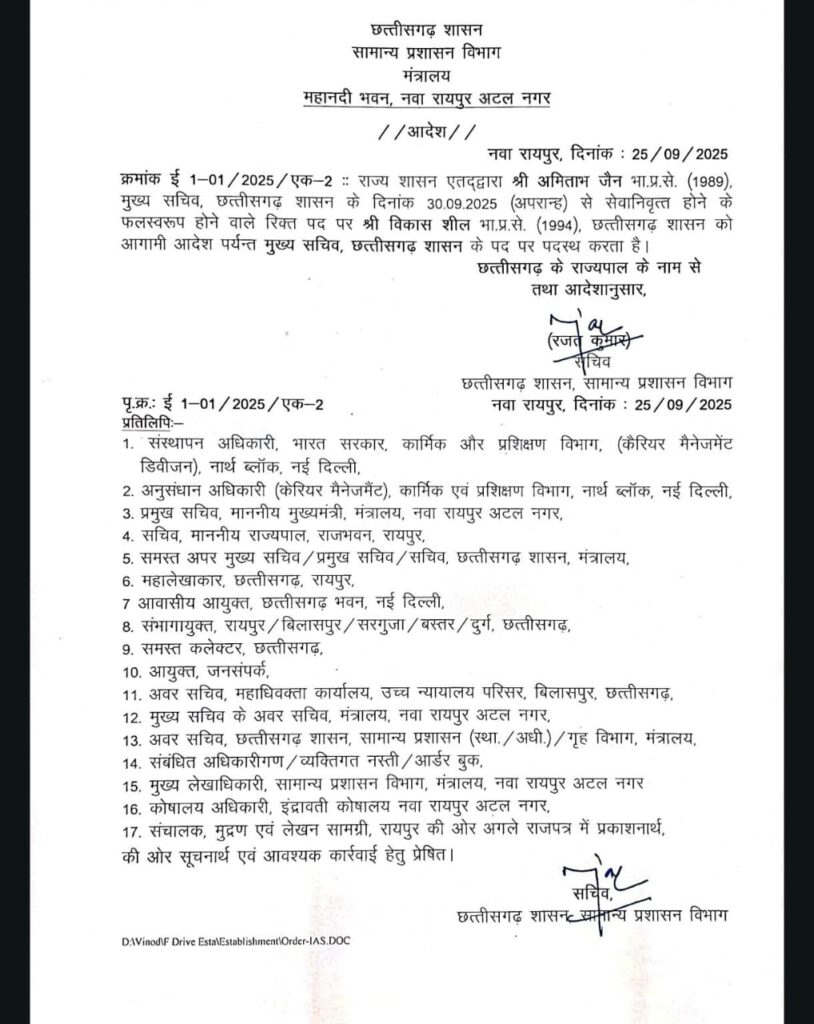 छत्तीसगढ़ शासन
सामान्य प्रशासन विभाग
मंत्रालय
महानदी भवन, नवा रायपुर अटल नगर
//आदेश//
नवा रायपुर, दिनांक : 25/09/2025
क्रमांक ई 1-01/2025/एक-2 :: राज्य शासन एतद्द्वारा श्री अमिताभ जैन भा.प्र.से. (1989),
मुख्य सचिव, छत्तीसगढ़ शासन के दिनांक 30.09.2025 (अपरान्ह) से सेवानिवृत्त होने के
फलस्वरूप होने वाले रिक्त पद पर श्री विकास शील भा.प्र.से. (1994), छत्तीसगढ़ शासन को
आगामी आदेश पर्यन्त मुख्य सचिव, छत्तीसगढ़ शासन के पद पर पदस्थ करता है।
छत्तीसगढ़ के राज्यपाल के नाम से
तथा आदेशानुसार,
(रजत कुमार)
सचिव
छत्तीसगढ़ शासन, सामान्य प्रशासन विभाग
पृ.क्र.: ई 1-01/2025/एक-2 नवा रायपुर, दिनांक : 25/09/2025
प्रतिलिपिः-
1. संस्थापन अधिकारी, भारत सरकार, कार्मिक और प्रशिक्षण विभाग, (कैरियर मैनेजमेंट
डिवीजन), नार्थ ब्लॉक, नई दिल्ली,
2. अनुसंधान अधिकारी (केरियर मैनेजमैंट), कार्मिक एवं प्रशिक्षण विभाग, नार्थ ब्लॉक, नई दिल्ली,
3. प्रमुख सचिव, माननीय मुख्यमंत्री, मंत्रालय, नवा रायपुर अटल नगर,
4. सचिव, माननीय राज्यपाल, राजभवन, रायपुर,
5. समस्त अपर मुख्य सचिव/प्रमुख सचिव/सचिव, छत्तीसगढ़ शासन, मंत्रालय,
6. महालेखाकार, छत्तीसगढ़, रायपुर,
7 आवासीय आयुक्त, छत्तीसगढ़ भवन, नई दिल्ली,
8. संभागायुक्त, रायपुर/बिलासपुर/सरगुजा/बस्तर/दुर्ग, छत्तीसगढ़,
9. समस्त कलेक्टर, छत्तीसगढ़,
10. आयुक्त, जनसंपर्क,
11. अवर सचिव, महाधिवक्ता कार्यालय, उच्च न्यायालय परिसर, बिलासपुर, छत्तीसगढ़,
12. मुख्य सचिव के अवर सचिव, मंत्रालय, नवा रायपुर अटल नगर,
13. अवर सचिव, छत्तीसगढ़ शासन, सामान्य प्रशासन (स्था./अधी.)/गृह विभाग, मंत्रालय,
14. संबंधित अधिकारीगण/व्यक्तिगत नस्ती/आर्डर बुक,
15. मुख्य लेखाधिकारी, सामान्य प्रशासन विभाग, मंत्रालय, नवा रायपुर अटल नगर
16. कोषालय अधिकारी, इंद्रावती कोषालय नवा रायपुर अटल नगर,
17. संचालक, मुद्रण एवं लेखन सामग्री, रायपुर की ओर अगले राजपत्र में प्रकाशनार्थ,
की ओर सूचनार्थ एवं आवश्यक कार्रवाई हेतु प्रेषित।
सचिव,
छत्तीसगढ़ शासन, सामान्य प्रशासन विभाग
D:\Vinod\F Drive Esta\Establishment\Order-IAS.DOC